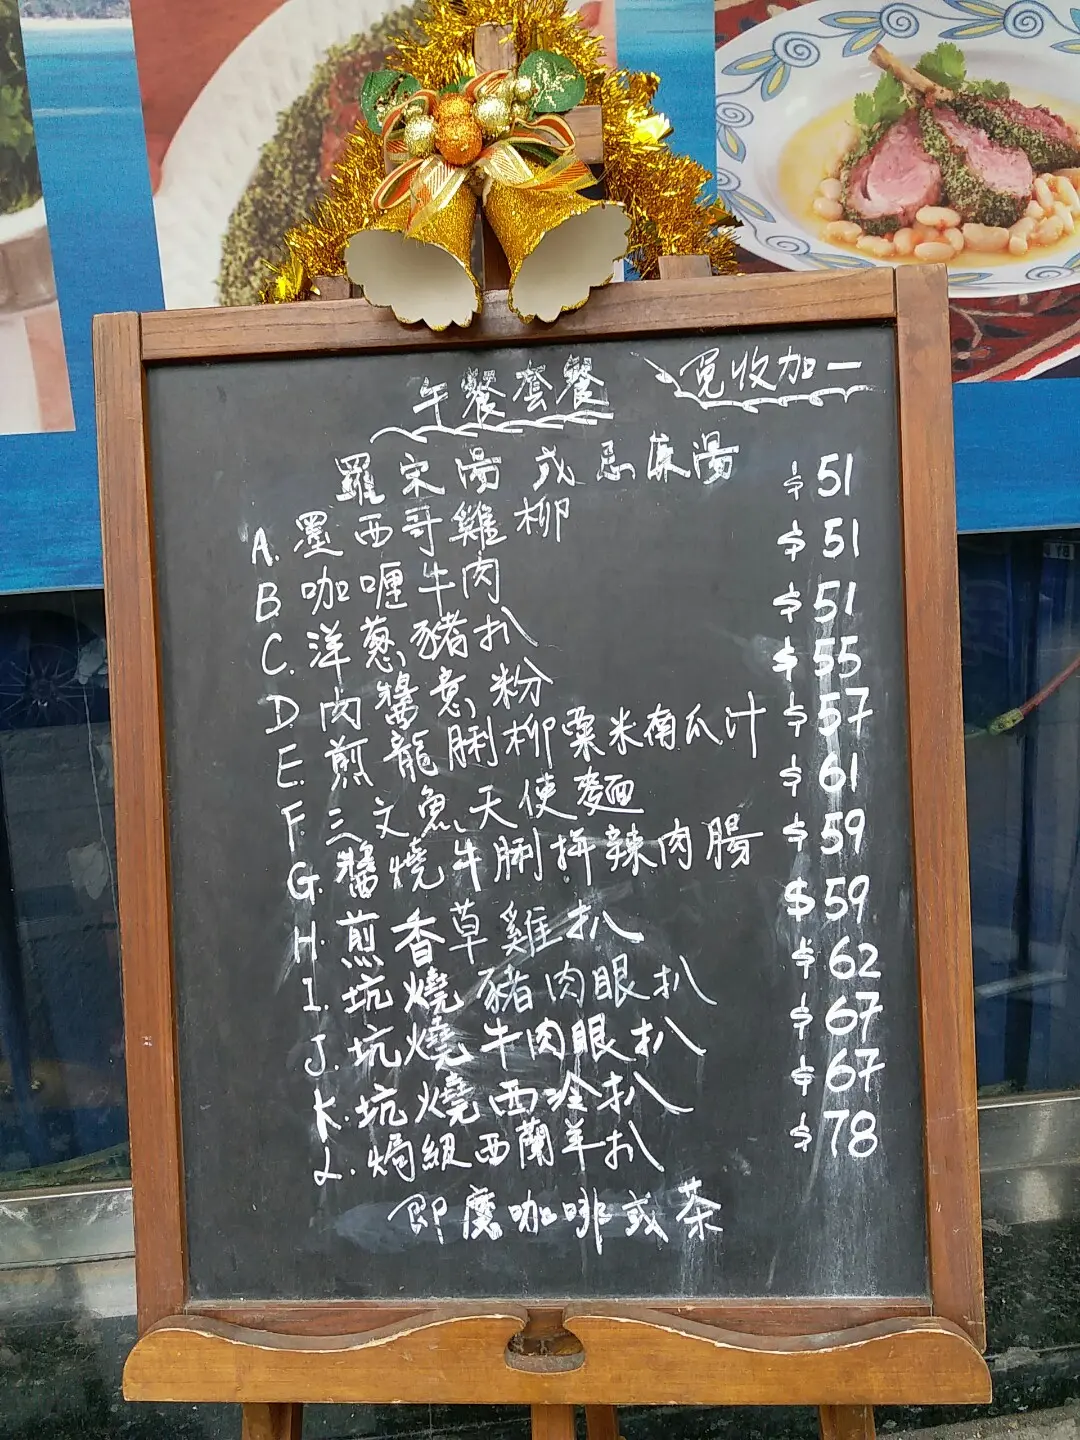 午餐套餐 免收加一
羅宋湯 或 忌廉湯
A. 墨西哥雞柳 $51
B 咖喱牛肉 $51
C. 洋葱豬扒 $51
D 肉醬意粉 $55
E. 煎龍脷柳粟米南瓜汁 $57
F. 三文魚天使麵 $61
G. 醬燒牛脷拼辣肉腸 $59
H. 煎香草雞扒 $59
I. 坑燒豬肉眼扒 $62
J. 坑燒牛肉眼扒 $67
K. 坑燒西冷扒 $67
L. 焗級西蘭羊扒 $78
即磨咖啡或茶